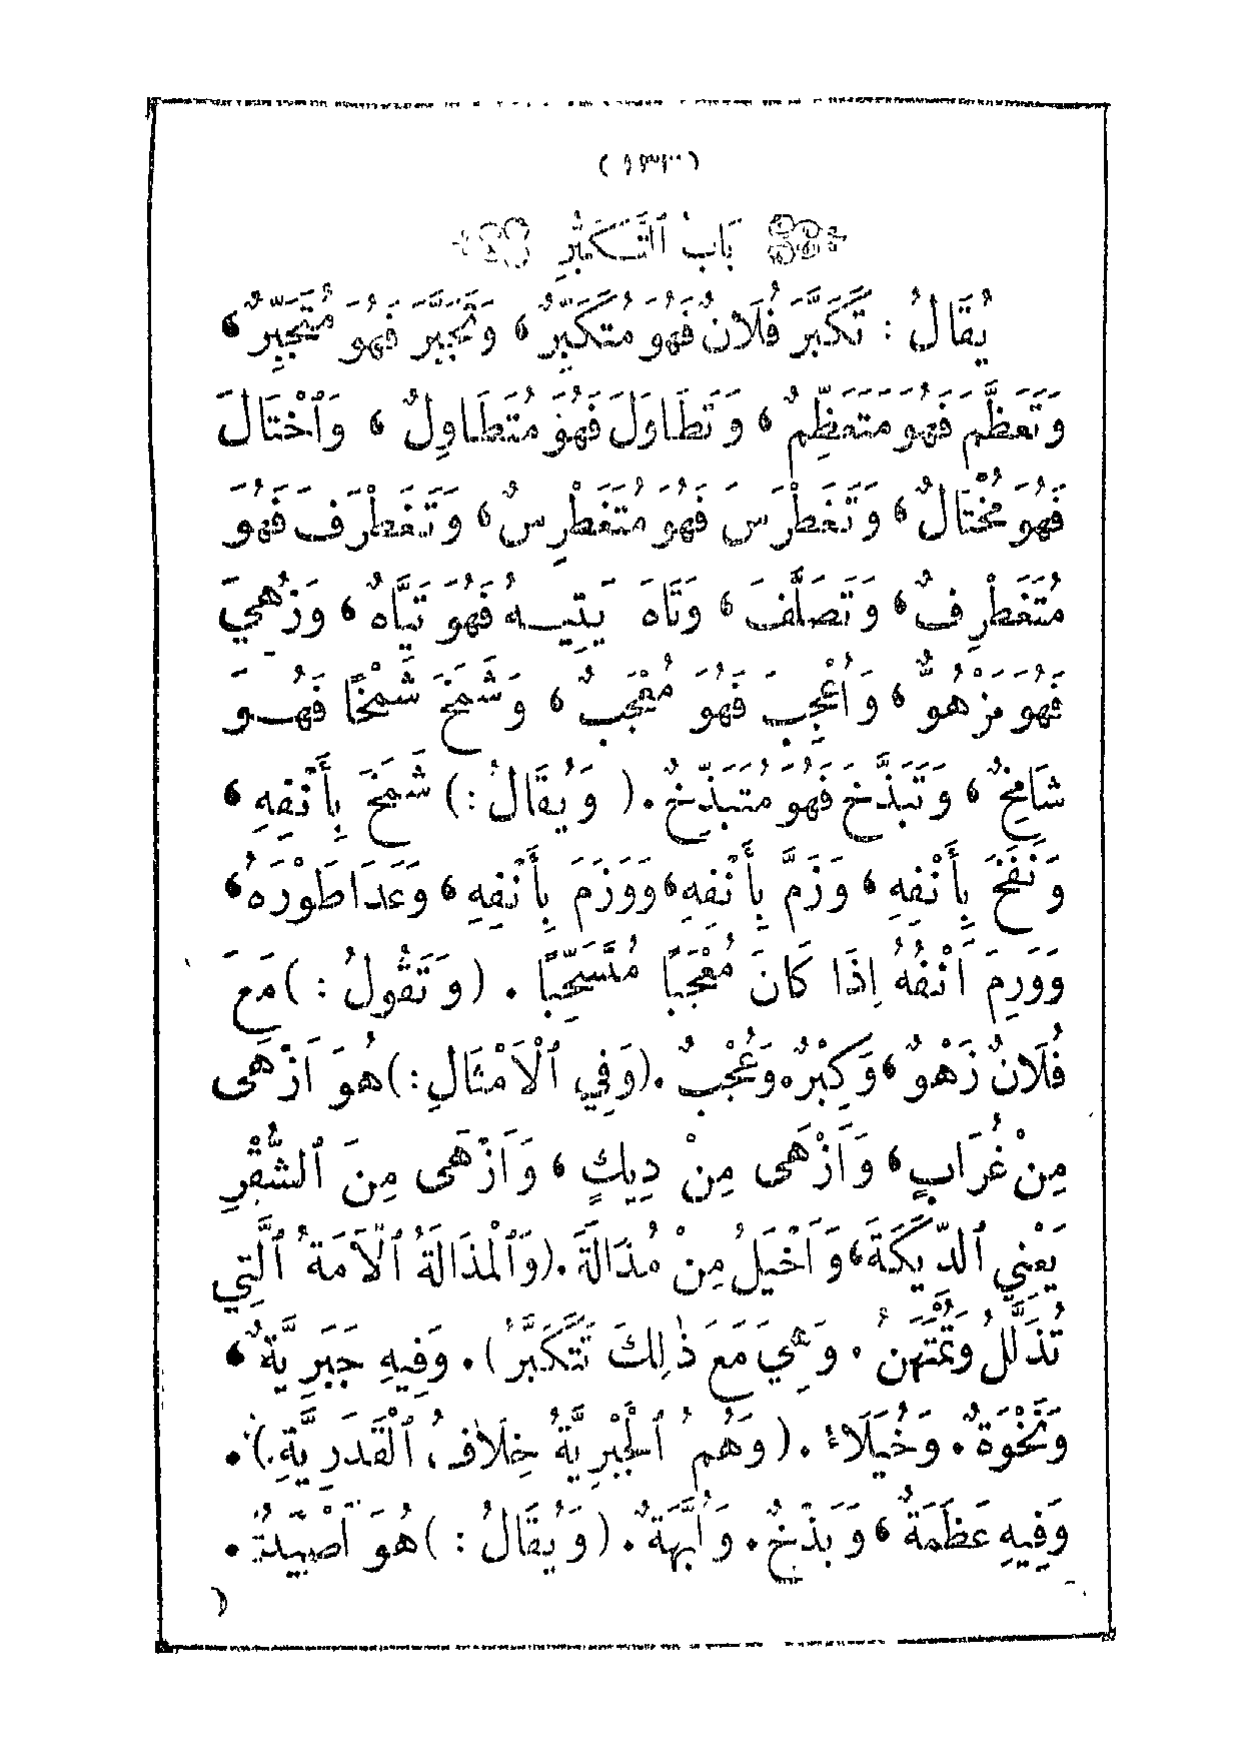 (١٣٣)
بَابُ ٱلتَّكَبُّرِ
يُقَالُ : تَكَبَّرَ فُلَانٌ فَهُوَ مُتَكَبِّرٌ ، وَتَجَبَّرَ فَهُوَ مُتَجَبِّرٌ ،
وَتَعَظَّمَ فَهُوَ مُتَعَظِّمٌ ، وَتَطَاوَلَ فَهُوَ مُتَطَاوِلٌ ، وَٱخْتَالَ
فَهُوَ مُخْتَالٌ ، وَتَغَطْرَسَ فَهُوَ مُتَغَطْرِسٌ ، وَتَغَطْرَفَ فَهُوَ
مُتَغَطْرِفٌ ، وَتَصَلَّفَ ، وَتَاهَ يَتِيهُ فَهُوَ تَيَّاهٌ ، وَزُهِيَ
فَهُوَ مَزْهُوٌّ ، وَأُعْجِبَ فَهُوَ مُعْجَبٌ ، وَشَمَخَ شَمْخًا فَهُوَ
شَامِخٌ ، وَتَبَذَّخَ فَهُوَ مُتَبَذِّخٌ . ( وَيُقَالُ : ) شَمَخَ بِأَنْفِهِ ،
وَنَفَخَ بِأَنْفِهِ ، وَزَمَّ بِأَنْفِهِ ، وَوَزَمَ بِأَنْفِهِ ، وَعَدَا طَوْرَهُ ،
وَوَرِمَ أَنْفُهُ إِذَا كَانَ مُعْجَبًا مُتَسَحِّبًا . ( وَتَقُولُ : ) مَعَ
فُلَانٌ زَهْوٌ ، وَكِبْرٌ . وَعُجْبٌ . ( وَفِي ٱلْأَمْثَالِ : ) هُوَ أَزْهَى
مِنْ غُرَابٍ ، وَأَزْهَى مِنْ دِيكٍ ، وَأَزْهَى مِنَ ٱلشُّقْرِ
يَعْنِي ٱلدِّيَكَةَ ، وَأَخْيَلُ مِنْ مُذَالَةَ . ( وَٱلْمُذَالَةُ ٱلْأَمَةُ ٱلَّتِي
تُذَلَّلُ وَتُمْتَهَنُ . وَهِيَ مَعَ ذٰلِكَ تَتَكَبَّرُ ) . وَفِيهِ جَبَرِيَّةٌ ،
وَنَخْوَةٌ . وَخُيَلَاءُ . ( وَهُمُ ٱلْجَبْرِيَّةُ خِلَافُ ٱلْقَدَرِيَّةِ . ) .
وَفِيهِ عَظَمَةٌ ، وَبَذَخٌ . وَأُبَّهَةٌ . ( وَيُقَالُ : ) هُوَ أَصْيَدُ .